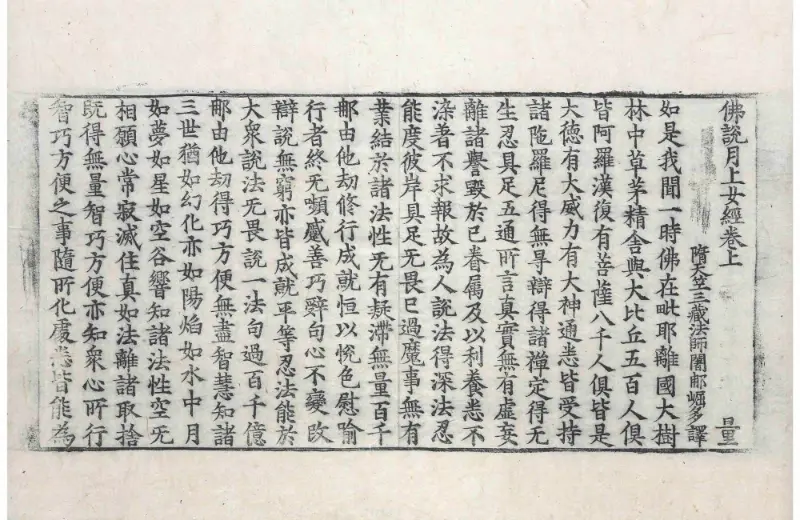 佛說月上女經卷上
隋天竺三藏法師闍那崛多譯 量
如是我聞一時佛在毗耶離國大樹
林中草茅精舍與大比丘五百人俱
皆阿羅漢復有菩薩八千人俱皆是
大德有大威力有大神通悉皆受持
諸陁羅尼得無㝵辯得諸禪定得无
生忍具足五通所言真實無有虛妄
離諸譽毀於己眷屬及以利養悉不
染着不求報故為人說法得深法忍
能度彼岸具足无畏已過魔事無有
業結於諸法性无有疑滯無量百千
那由他劫修行成就恒以悅色慰喻
行者終无嚬蹙善巧辭句心不變改
辯說無窮亦皆成就平等忍法能於
大衆說法无畏說一法句過百千億
那由他劫得巧方便無盡智慧知諸
三世猶如幻化亦如陽焰如水中月
如夢如星如空谷響知諸法性空无
相願心常寂滅住真如法離諸取捨
既得無量智巧方便亦知衆心所行
智巧方便之事隨所化處悉皆能為